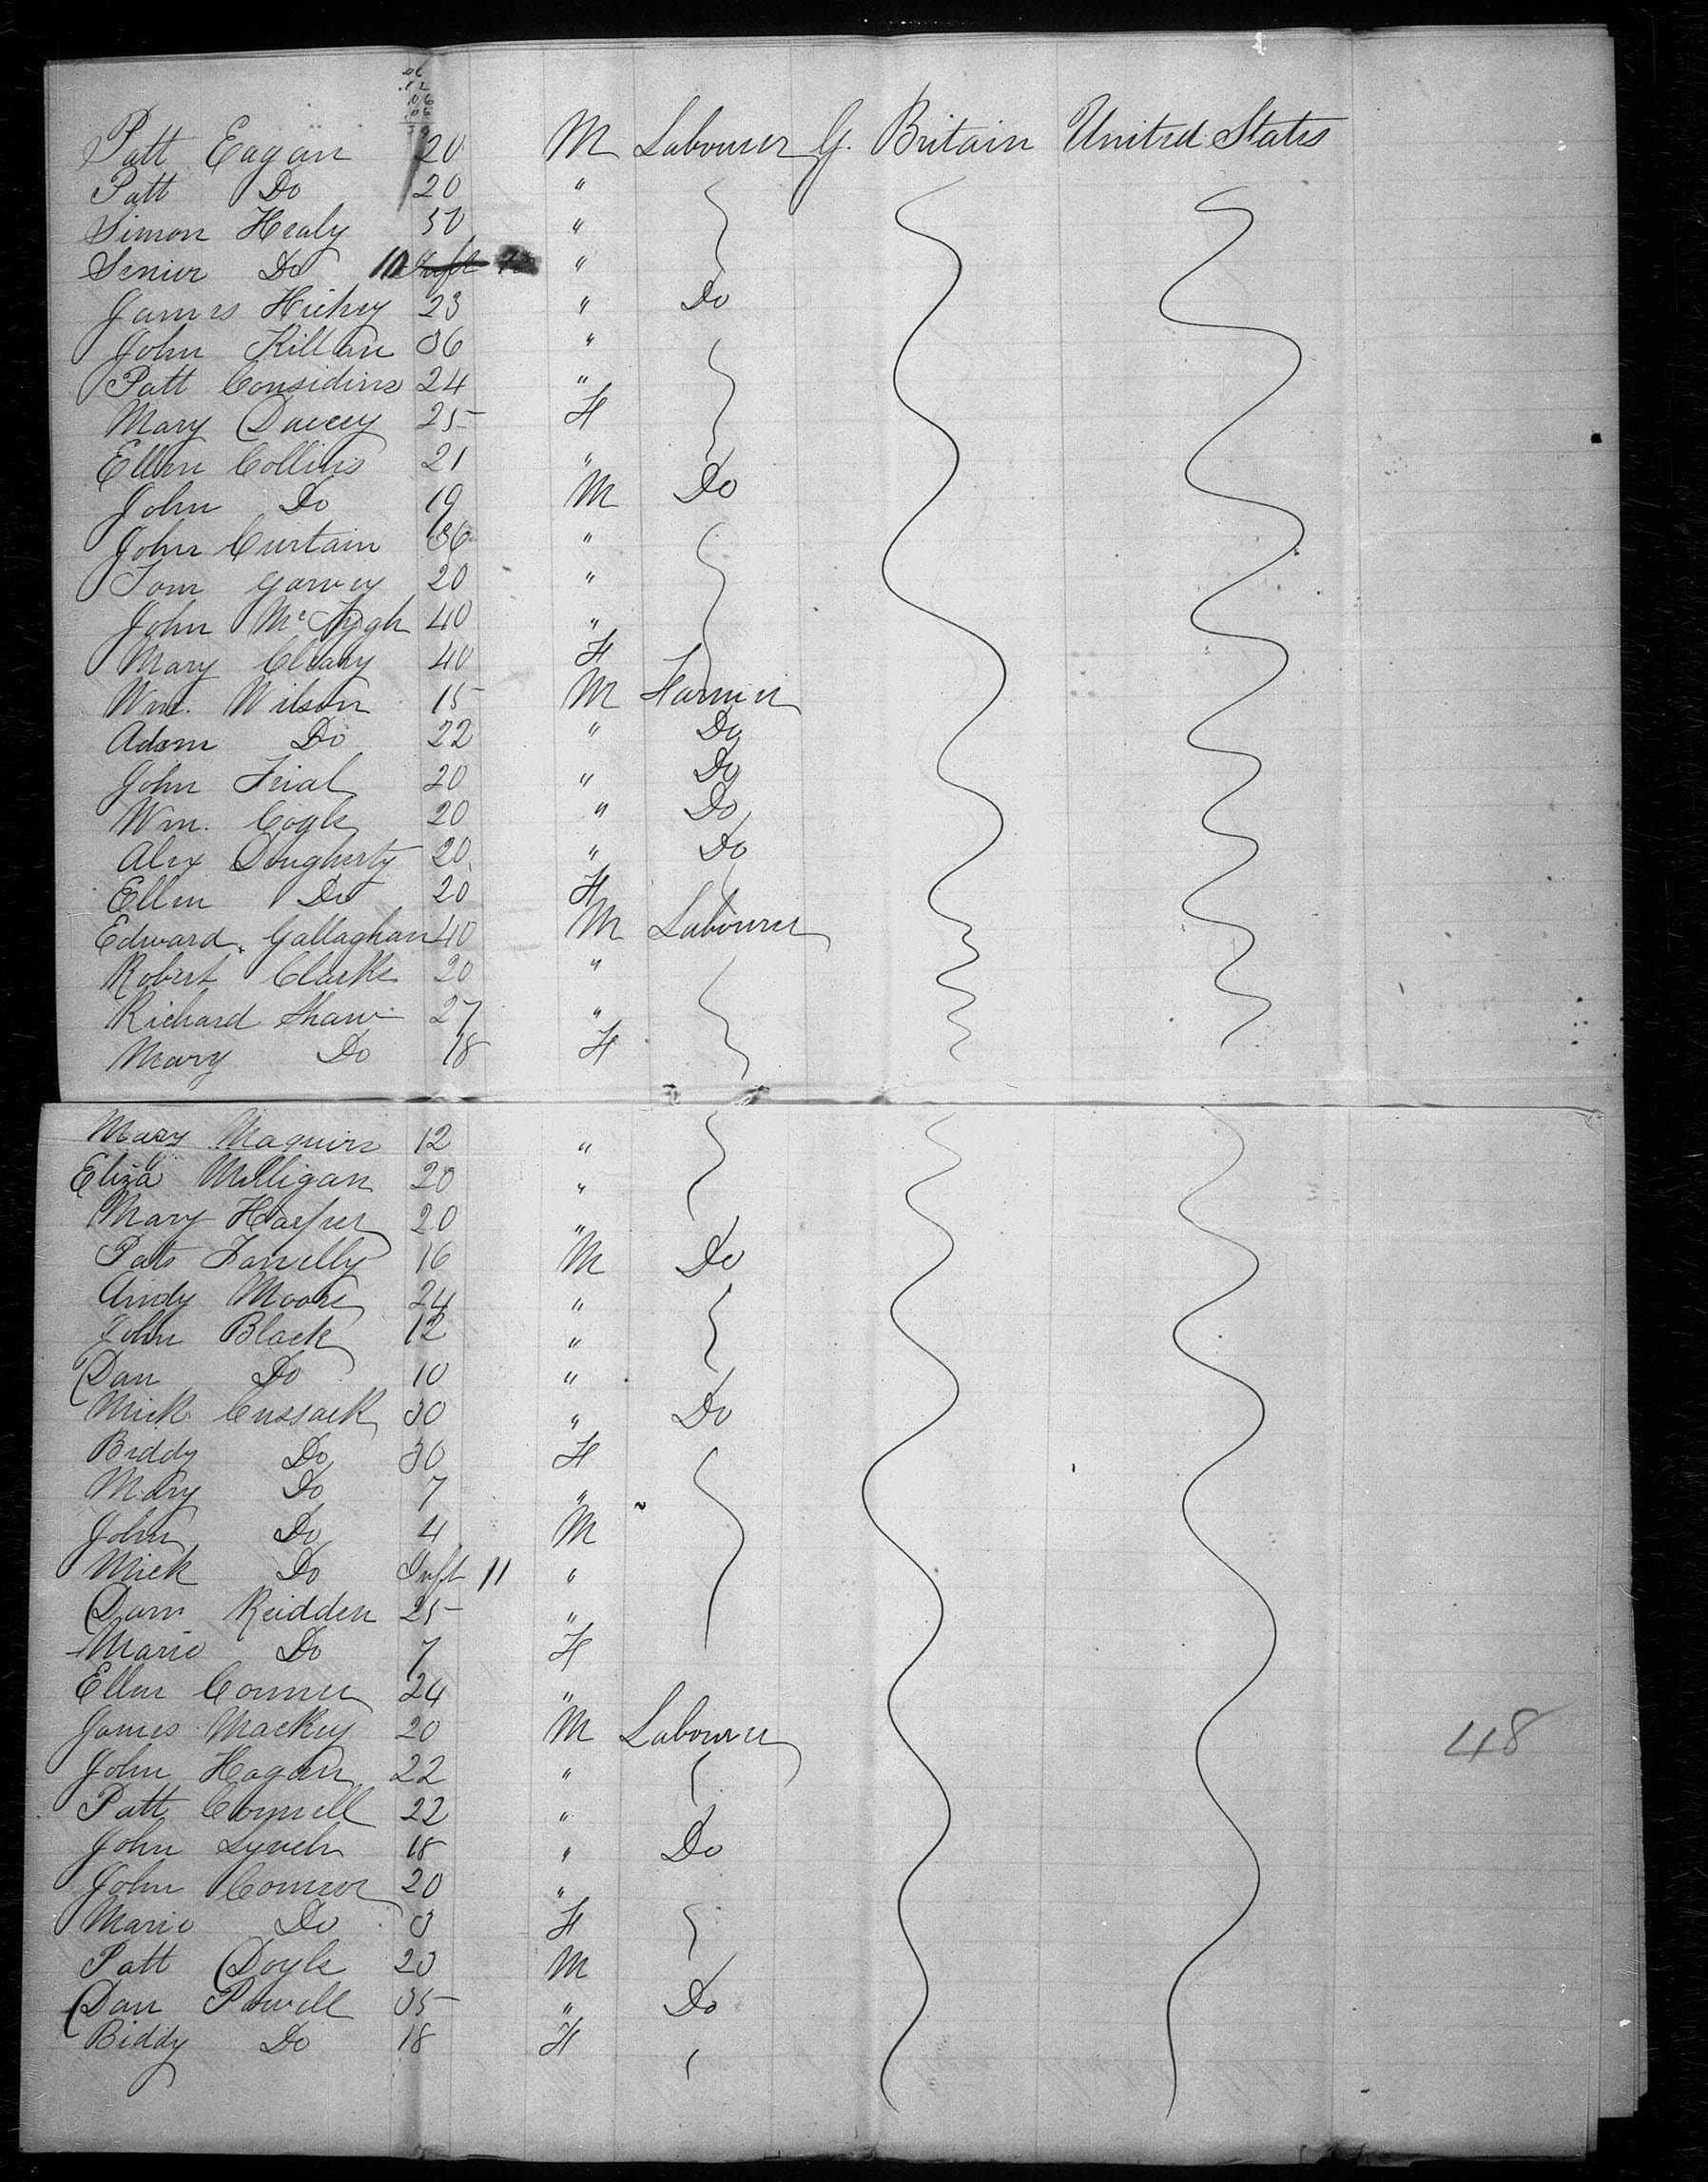 Patt Eagan 20 M Labourer G. Britain United States
Patt Do 20 "
Simon Healy 50 "
Senior Do 10 "
James Hickey 23 " Do
John Killan 36 "
Patt Considine 24 "
Mary Davey 25 F
Ellen Collins 21 "
John Do 19 M Do
John Curtain 36 "
Tom Garvey 20 "
John McHugh 40 "
Mary Cleary 40 F
Wm. Wilson 15 M Farmer
Adam Do 22 " Do
John Frial 20 " Do
Wm. Cogle 20 " Do
Alex Dougherty 20 " Do
Ellen Do 20 F
Edward Gallaghan 40 M Labourer
Robert Clarke 20 "
Richard Shaw 27 "
Mary Do 18 F
Mary Maguire 12 "
Eliza Milligan 20 "
Mary Harper 20 "
Pat Farrelly 16 M Do
Andy Moore 24 "
John Black 12 "
Dan Do 10 "
Mick Cussack 30 " Do
Biddy Do 30 F
Mary Do 7 "
John Do 4 M
Mick Do Inft 11 "
Dam Reidden 25 "
Marie Do 7 F
Ellen Conner 24 "
James Mackey 20 M Labourer 48
John Hagan 22 "
Patt Connell 22 "
John Lynch 18 " Do
John Connor 20 "
Marie Do 3 F
Patt Doyle 20 M
Dan Powell 35 " Do
Biddy Do 18 F